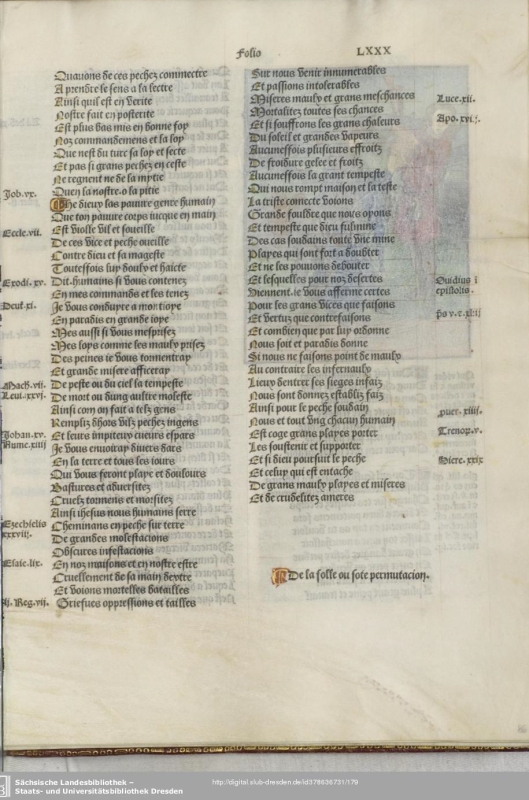 Folio LXXX
Quauons de ces pechez commectre
A prendre le sens a la lectre
Ainsi quil est en verite
Nostre fait en posterite
Est plus bas mis en bonne foy
Noz commandemens et la loy
Que nest du turc sa loy et secte
Et pas si grans pechez en ceste
Ne regnent ne de la mytie
Quen la nostre.o la pitie
Iob.xx.
He dieux las pauure genre humain
Que ton pauure corps iucque en main
Est viole vil et soueille
Eccle.vii.
De ces vice et peche oueille
Contre dieu et sa mageste
Toutesfois luy douly et haicte
Dit.humains si vous contenez
Exodi.xv.
En mes commandz et les tenez
Je vous conduyre a mon ioye
Deut.xi.
En paradis en grande ioye
Mes aussi si vous mesprisez
Mes loys comme les mauly prisez
Des peines ie vous tormentray
Et grande misere afficeray
De peste ou du ciel la tempeste
Mach.vii.
De mort ou dung aultre moleste
Leui.xxvi.
Ainsi com on fait a telz gens
Rempliz dhors vilz pechez ingens
Et leurs impiteux cueurs espars
Johan.xv.
Je vous enuoiray diuers dars
Nume.xiiij
En la terre et tous les iours
Qui vous feront playe et doulours
Pastures et aduersitez
Cruelz tormens et morsitez
Ainsi ihesus nous humains serre
Cheminans en peche sur terre
Ezechielis xxxviij.
De grandes molestacions
Obscures infestacions
En noz maisons et en nostre estre
Esaie.lix.
Cruellement de sa main dextre
Et voions mortelles batailles
Griefues oppressions et tailles
ij.Reg.vij.
Sur nous venir innumerables
Et passions intolerables
Miseres mauly et grans meschances
Luce.xii.
Mortalitez toutes ses chances
Et si souffrons les grans chaleurs
Apo.xvi.
Du soleil et grandes vapeurs
Aucuneffois plusieurs effroitz
De froidure gelee et froitz
Aucuneffois la grant tempeste
Qui nous rompt maison et la teste
La triste comecte voions
Grande fouldre que nous oyons
Et tempeste que dieu fulmine
Des cas soudains toute vne mine
Playes qui sont fort a doubter
Et ne les pouuons debouter
Et lesquelles pour noz desertes
Ouidius i epistolis.
Viennent.ie vous afferme certes
Pour les grans vices que faisons
Et vertuz que contrefaisons
Et combien que par luy ordonne
Nous soit et paradis donne
Si nous ne faisons point de mauly
Au contraire les infernauly
Lieux dentrer ses sieges infaiz
Nous sont donnez establiz faiz
Ainsi pour le peche soudain
Nous et tout vng chacun humain
Puer.xiiij.
Est coge grans playes porter
Les soustenir et supporter
Treno.v.
Et si dieu poursuit le peche
Et celuy qui est entache
Hiere.xxix
De grans mauly playes et miseres
Et de crudelitez ameres
De la folle ou sote permutacion.
Sächsische Landesbibliothek –
Staats- und Universitätsbibliothek Dresden
http://digital.slub-dresden.de/id378636731/179